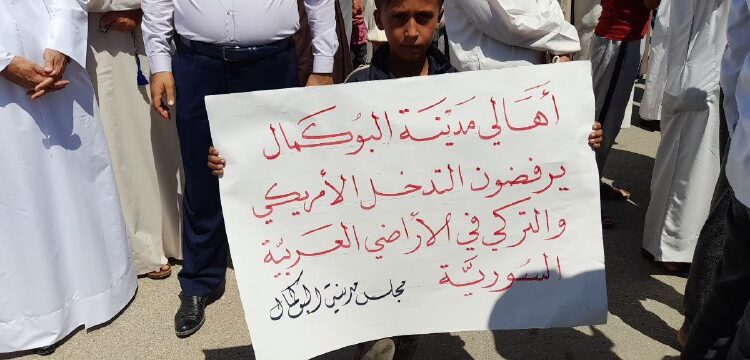 أهالي مَدْينَة البُوكَمال
يرفضون التدخل الأمريكي
والتركي في الأراضي العَرَبيَّة
السُوريَّة
مجلس مدينة البوكمال